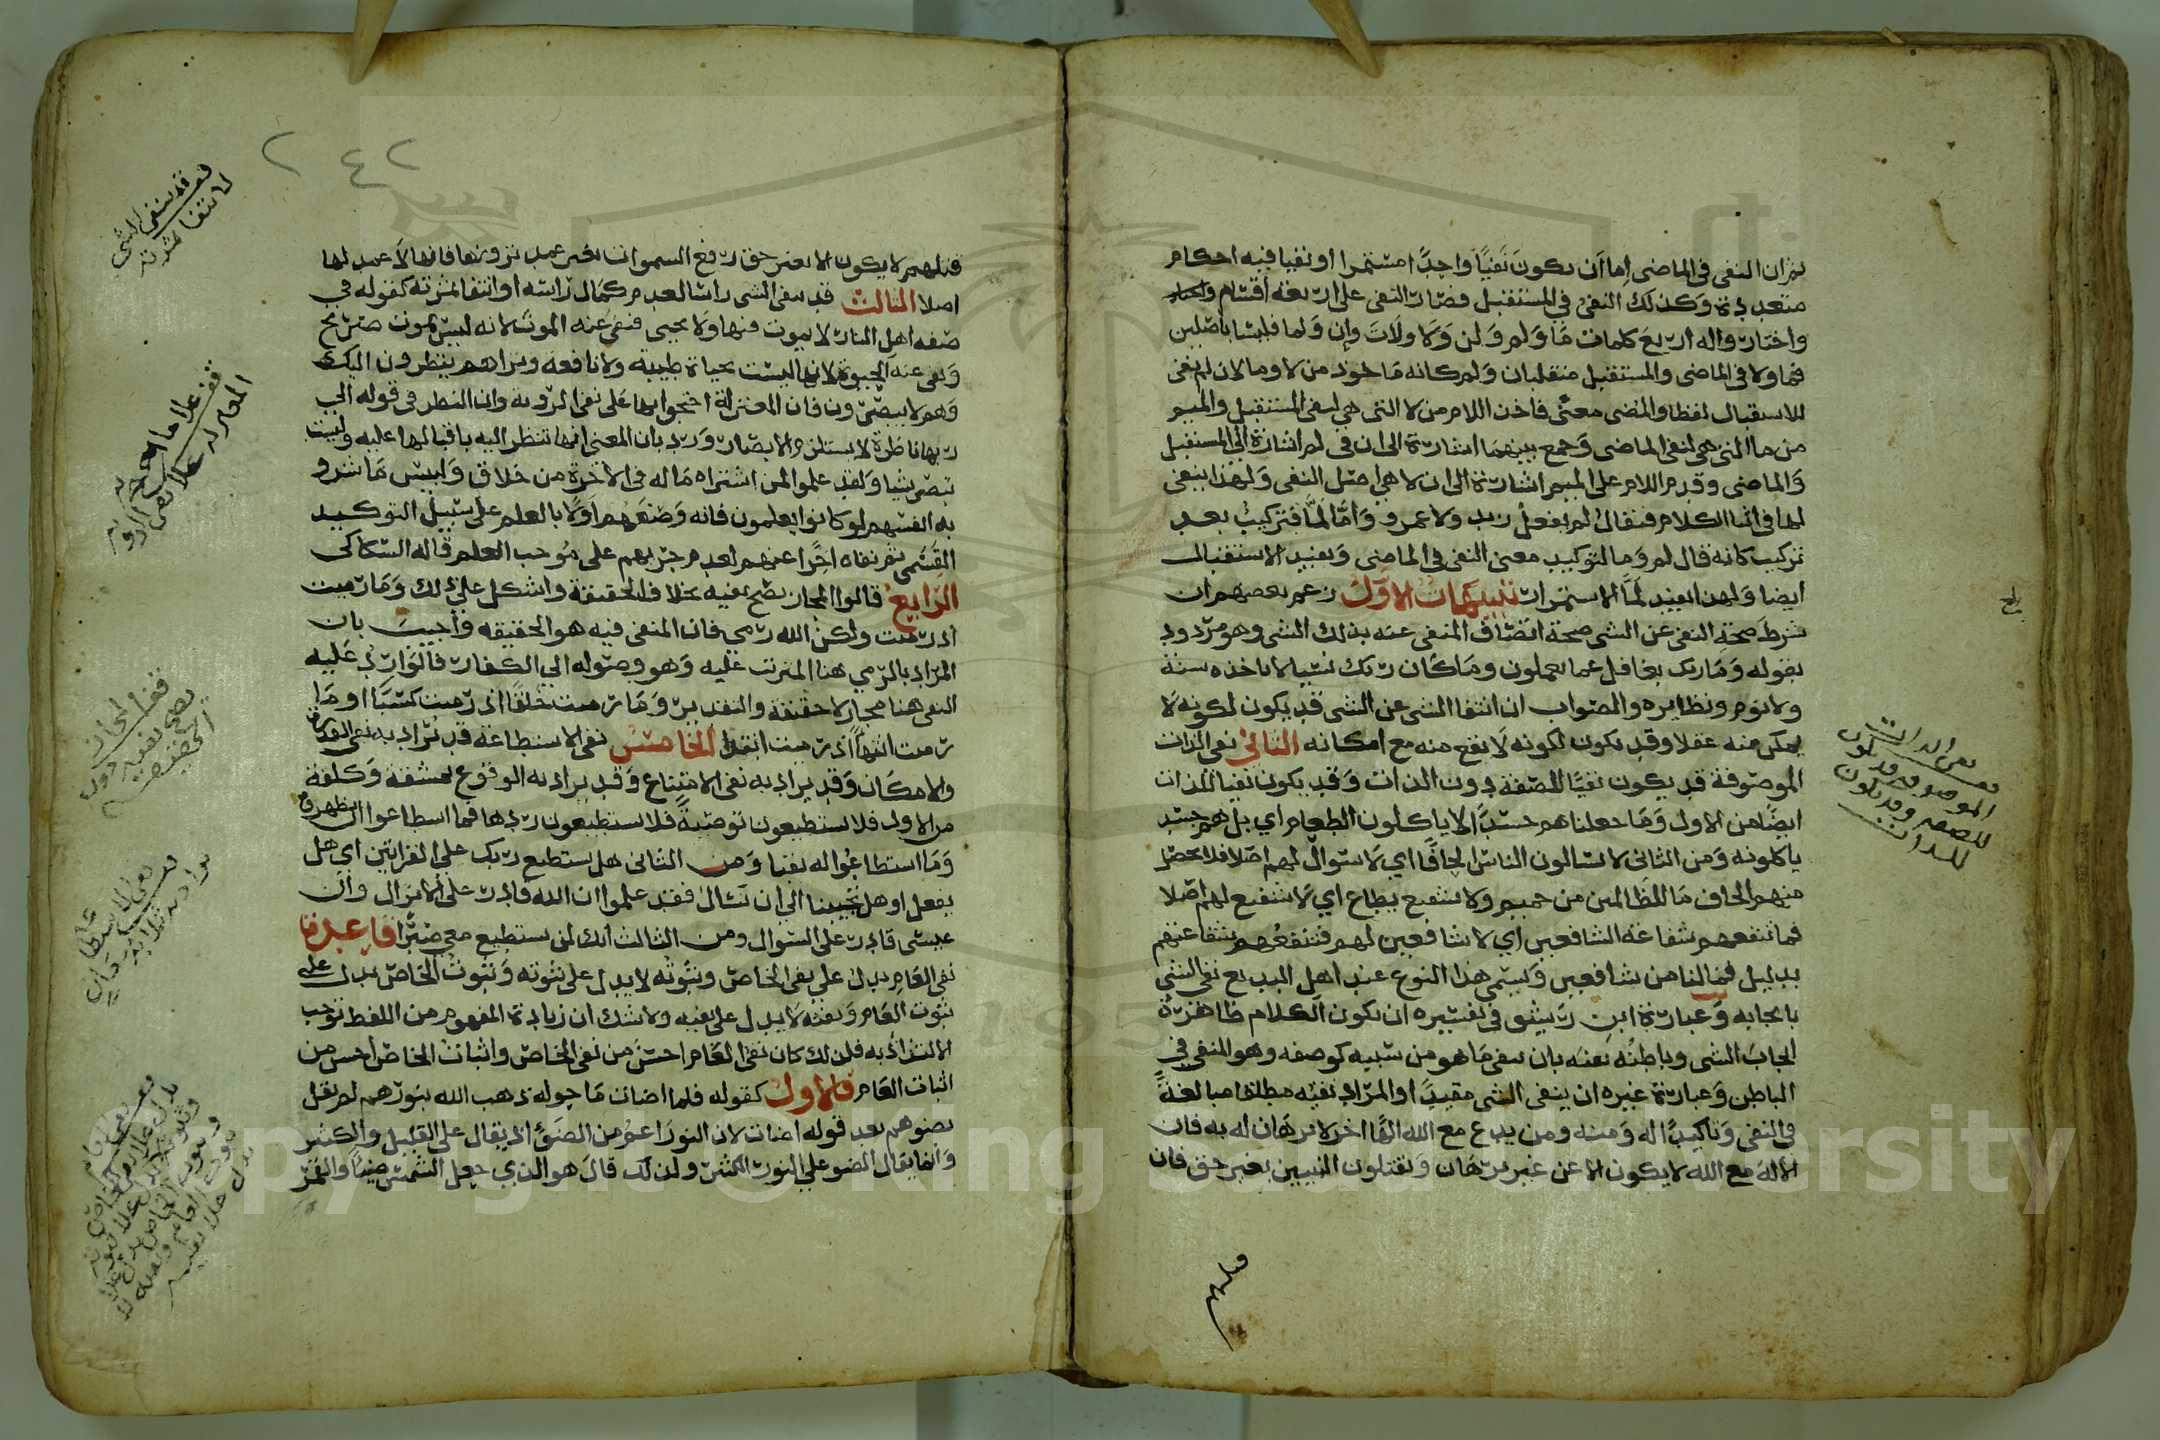 ثم ان النفى فى الماضى اما ان يكون نفيا واحدا مستمرا او نفيا فيه احكام
متعددة وكذلك النفى فى المستقبل فصار النفى على اربعة اقسام
واختاروا له اربع كلمات ما ولم ولن ولا ولات وان ولما فليسا باصلين
فما ولا فى الماضى والمستقبل متقابلان ولم كانه ماخوذ من لا وما لان لم نفى
للاستقبال لفظا والمضى معنى فاخذ اللام من لا التى هى لنفى المستقبل والميم
من ما التى هى لنفى الماضى وجمع بينهما اشارة الى ان فى لم اشارة الى المستقبل
والماضى وقدم اللام على الميم اشارة الى ان لا هى اصل النفى ولهذا ينفى
لها فى اثنا الكلام فيقال لم يفعل زيد ولا عمرو واما لما فتركيب بعد
تركيب كانه قال لم وما لتوكيد معنى النفى فى الماضى ويفيد الاستقبال
ايضا ولهذا يفيد لما الاستمرار تنبيهات الاول زعم بعضهم ان
شرط صحة النفى عن الشى صحة اتصاف المنفى عنه بذلك الشى وهو مردود
بقوله وما ربك بغافل عما يعملون وما كان ربك نسيا لا تاخذه سنة
ولا نوم ونظايره والصواب ان انتفا الشى عن الشى قد يكون لكونه لا
يمكن منه عقلا وقد يكون لكونه لا يقع منه مع امكانه الثانى نفى الذات
الموصوفة قد يكون نفيا للصفة دون الذات وقد يكون نفيا للذات
ايضا من الاول وما جعلناهم جسدا لا ياكلون الطعام اى بل هم جسد
ياكلونه ومن الثانى لا يسالون الناس الحافا اى لا سوال لهم اصلا فلا يحصل
منهم الحاف ما للظالمين من حميم ولا شفيع يطاع اى لا شفيع لهم اصلا
فما تنفعهم شفاعة الشافعين اى لا شافعين لهم فتنفعهم شفاعتهم
بدليل فما لنا من شافعين ويسمى هذا النوع عند اهل البديع نفى الشى
بايجابه وعبارة ابن رشيق فى تفسيره ان يكون الكلام ظاهره
ايجاب الشى وباطنه نفيه بان ينفى ما هو من سببه كوصفه وهو المنفى فى
الباطن وعبارة غيره ان ينفى الشى مقيدا والمراد نفيه مطلقا مبالغة
فى النفى وتاكيدا له ومنه ومن يدع مع الله الها اخر لا برهان له به فان
الاله مع الله لا يكون الا عن غير برهان ويقتلون النبيين بغير حق فان
قتلهم
نفى الذات
الموصوفه قد يكون
للصفه وقد يكون
للذات
قتلهم لا يكون الا بغير حق رفع السموات بغير عمد ترونها فانها لا عمد لها
اصلا الثالث قد ينفى الشى راسا لعدم كمال راسه او انتفا ثمرته كقوله فى
صفه اهل النار لا يموت فيها ولا يحيى فنفى عنه الموت لانه ليس بموت صريح
ونفى عنه الحيوة لانها ليست بحياة طيبة ولا نافعة وتراهم ينظرون اليك
وهم لا يبصرون فان المعتزلة احتجوا بها على نفى الروية وان النظر فى قوله الى
ربها ناظرة لا يستلزم الابصار ورد بان المعنى انها تنظر اليه باقبالها عليه وليست
تبصر شيا ولقد علموا لمن اشتراه ما له فى الاخرة من خلاق ولبيس ما شروا
به انفسهم لو كانوا يعلمون فانه وصفهم اولا بالعلم على سبيل التوكيد
القسمى ثم نفاه اخرا عنهم لعدم جريهم على موجب العلم قاله السكاكى
الرابع قالوا المجاز يصح نفيه بخلاف الحقيقة واشكل على ذلك وما رميت
اذ رميت ولكن الله رمى فان المنفى فيه هو الحقيقه واجيب بان
المراد بالرمى هنا المترتب عليه وهو وصوله الى الكفار فالوارد عليه
النفى هنا مجاز لا حقيقة والتقدير وما رميت خلقا اذ رميت كسبا او ما
رميت انتها اذ رميت ابتدا الخامس نفى الاستطاعة قد يراد به نفى القدرة
والامكان وقد يراد به نفى الامتناع وقد يراد به الوقوع بمشقة وكلفة
من الاول فلا يستطيعون توصية فلا يستطيعون ردها فما اسطاعوا ان يظهروه
وما استطاعوا له نقبا ومن الثانى هل يستطيع ربك على القرايتين اى هل
يفعل او هل تجيبنا الى ان تسال فقد علموا ان الله قادر على الانزال وان
عيسى قادر على السوال ومن الثالث انك لن تستطيع معى صبرا قاعدة
نفى العام يدل على نفى الخاص وثبوته لا يدل على ثبوته وثبوت الخاص يدل على
ثبوت العام ونفيه لا يدل على نفيه ولا شك ان زيادة المفهوم من اللفظ توجب
الالتذاذ به فلذلك كان نفى العام احسن من نفى الخاص واثبات الخاص احسن من
اثبات العام فالاول كقوله فلما اضات ما حوله ذهب الله بنورهم لم يقل
بضوهم بعد قوله اضات لان النور اعم من الضوء اذ يقال على القليل والكثير
وانما يقال الضو على النور الكثير ولذلك قال هو الذى جعل الشمس ضيا والقمر
٢٤٢
قد ينفى الشى
لانتفا ثمرته
قف على ما احتجت به
المعتزله على نفى الرويه
قف المجاز
يصح نفيه دون
الحقيقه
Copyright © King Saud University
1957